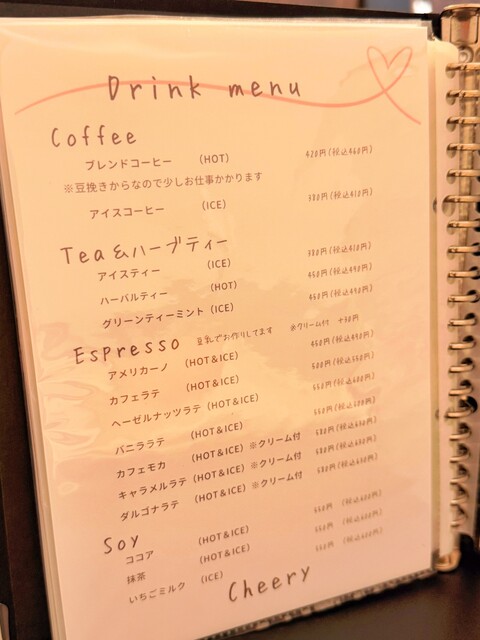 Drink menu
Coffee
ブレンドコーヒー (HOT) 420円(税込460円)
※豆挽きからなので少しお仕事かかります
アイスコーヒー (ICE) 380円(税込410円)
Tea &ハーブティー
アイスティー (ICE) 380円(税込410円)
ハーバルティー (HOT) 450円(税込490円)
グリーンティーミント (ICE) 450円(税込490円)
Espresso 豆乳でお作りしてます ※クリーム付 +50円
アメリカーノ (HOT&ICE) 450円(税込490円)
カフェラテ (HOT&ICE) 500円(税込550円)
ヘーゼルナッツラテ (HOT&ICE) 550円(税込600円)
バニララテ (HOT&ICE) 550円(税込600円)
カフェモカ (HOT&ICE) ※クリーム付 580円(税込630円)
キャラメルラテ (HOT&ICE) ※クリーム付 580円(税込630円)
ダルゴナラテ (HOT&ICE) ※クリーム付 580円(税込630円)
Soy
ココア (HOT&ICE) 550円 (税込600円)
抹茶 (HOT&ICE) 550円 (税込600円)
いちごミルク (ICE) 550円 (税込600円)
Cheery